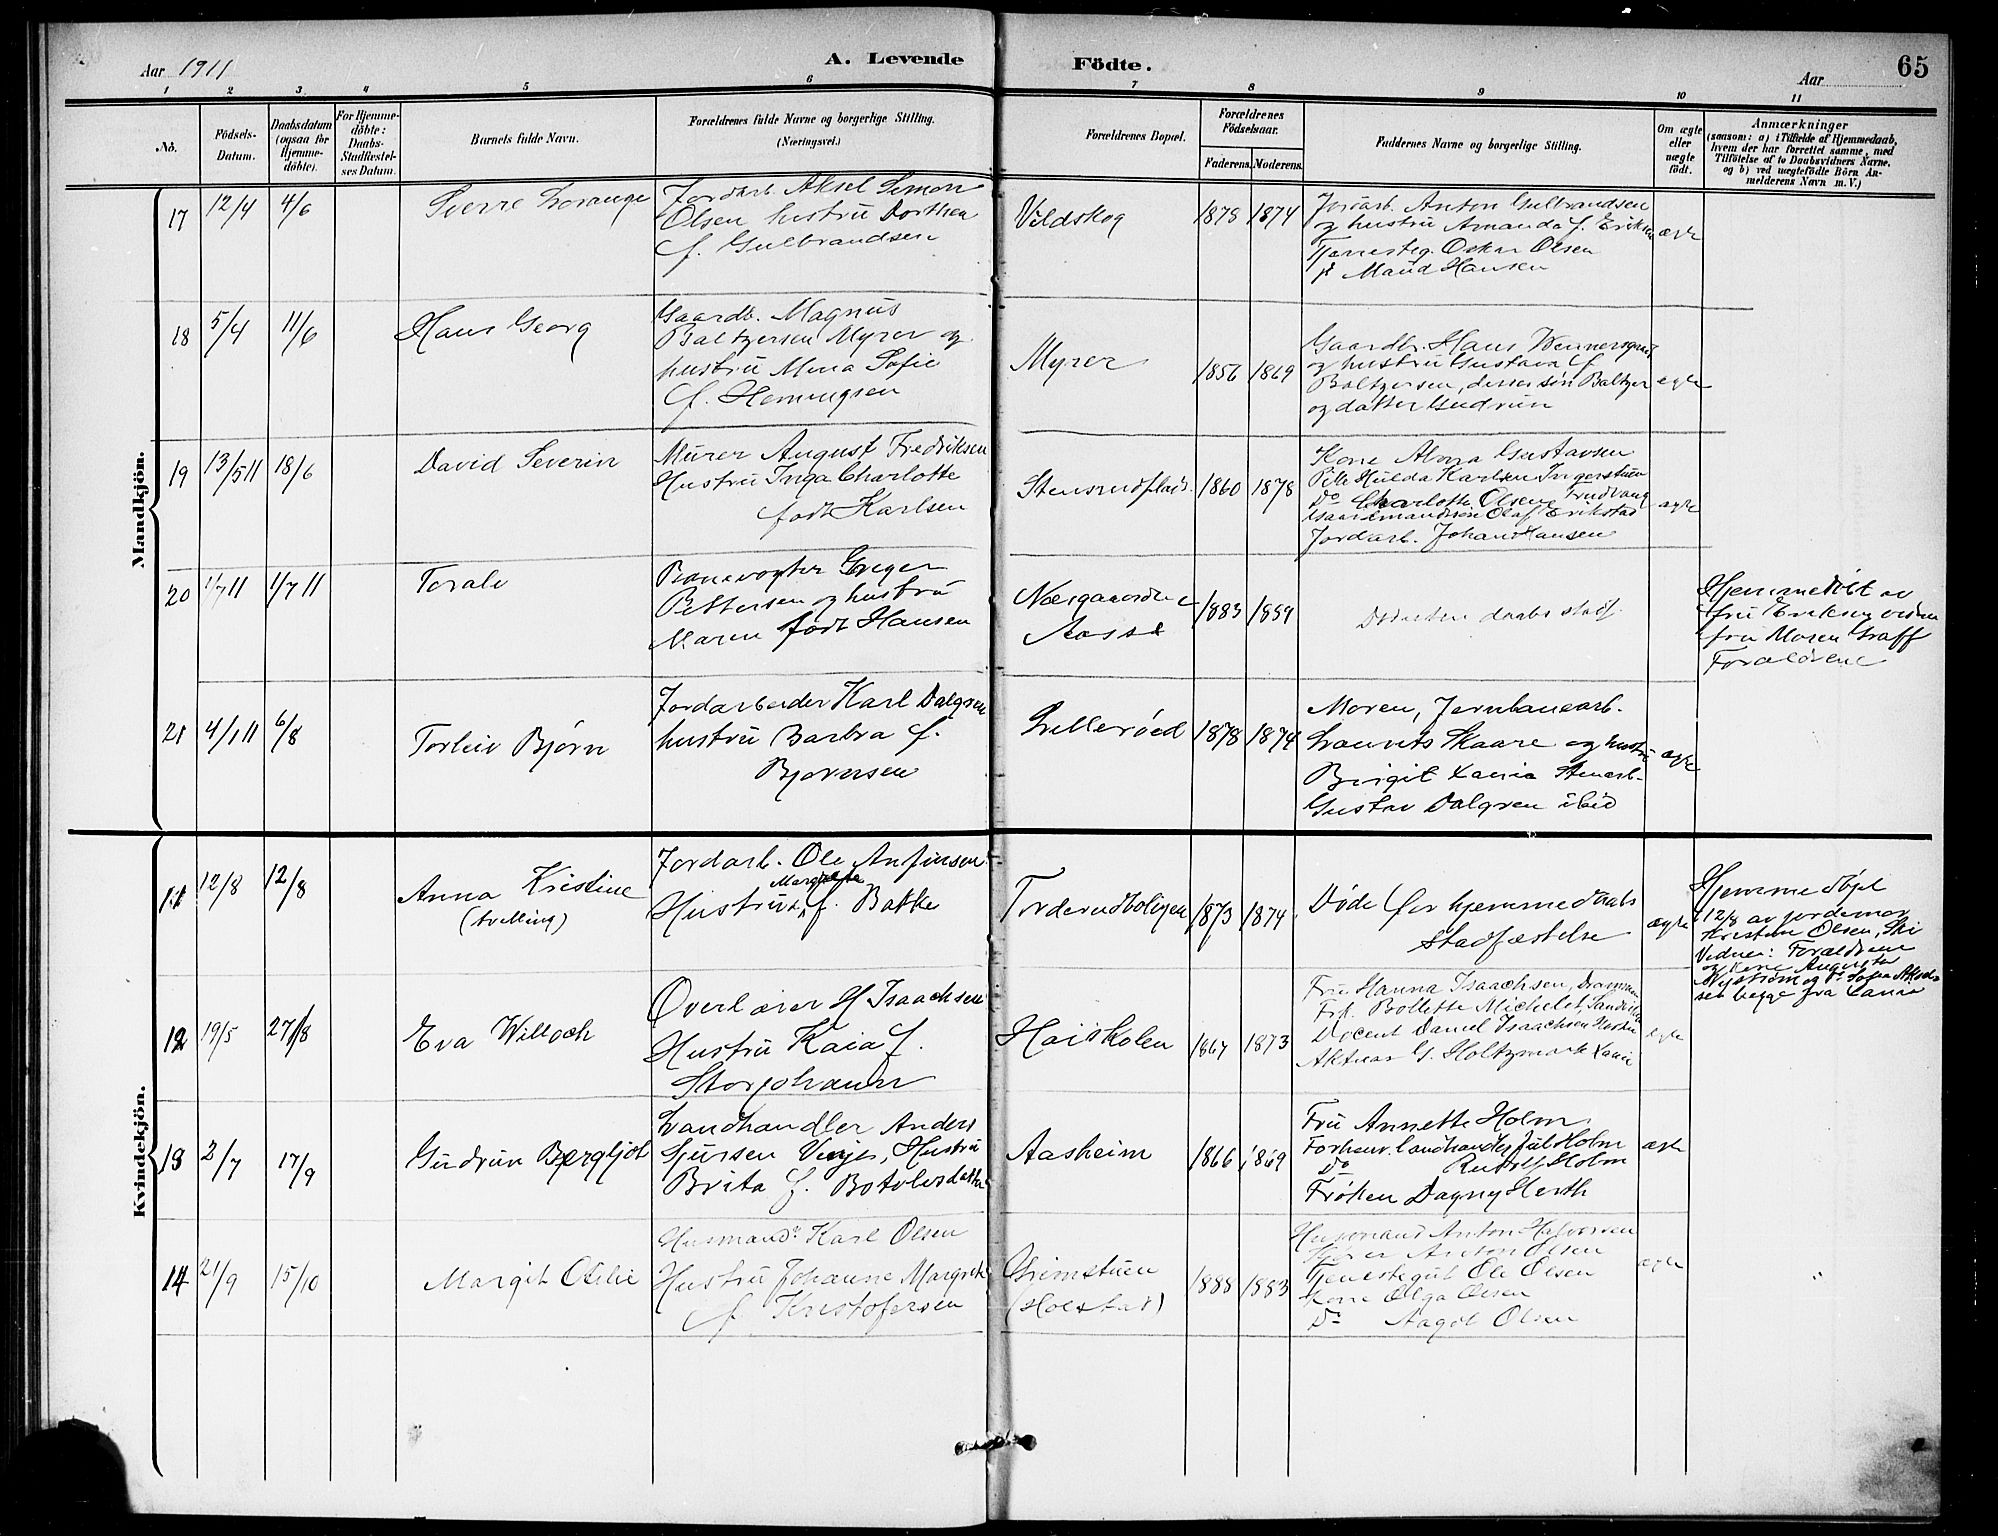 Aar 1911
A. Levende
Födte.
Aar
65
1 2 3 4 5 6 7 8 9 10 11
No.
Födsels-
Datum.
Daabsdatum
(ogsaa for
Hjemme-
döbte).
For Hjemme-
döbte:
Daabs-
Stadfæstel-
ses Datum.
Barnets fulde Navn.
Forældrenes fulde Navne og borgerlige Stilling.
(Næringsvei.)
Forældrenes Bopæl.
Forældrenes
Födselsaar.
Faderens.
Moderens.
Faddernes Navne og borgerlige Stilling.
Om ægte
eller
uægte
födt.
Anmærkninger
(saasom: a) i Tilfælde af Hjemmedaab,
hvem der har forrettet samme, med
Tilföielse af to Daabsvidners Navne,
og b) ved uægtefödte Börn An-
melderens Navn m. V.)
Mandkjön.
17
12/4
4/6
Sverre Lorange
Jordarb. Aksel Simon
Olsen hustru Dorthea
f. Gulbrandsen
Vildskog
1878
1874
Jordarb. Anton Gulbrandsen
og hustru Amanda f. Eriksen
Tjenesteg. Oskar Olsen
p. Maud Hansen
ægte
18
5/4
11/6
Hans Georg
Gaardb. Magnus
Baltzersen Myrer og
hustru Mina Sofie
f. Hemingsen
Myrer
1856
1869
Gaardbr. Hans
og hustru Gustava f.
Baltzersen, deres søn Baltzer
og datter Gudrun
egte
19
13/5 11
18/6
David Severin
Murer August Fredriksen
Hustru Inga Charlotte
født Karlsen
1860
1878
Kone Alma Gustavsen
Pike Hulda Karlsen Ingerstuen
Do Charlotte Olsen Trudvang
Olaf Erikstad
Jordarb. Johan Hansen
ægte
20
1/7 11
1/7 11
Toralv
Banevogter Greger
Pettersen og hustru
Maren født Hansen
Næsgaardene
1883
1889
daabs stadf.
Hjemmedøbt av
fru Eriksen
fru Mosen
Forældrene
21
4/1 11
6/8
Torleiv Bjørn
Jordarbeider Karl Dalgren
hustru Barbra f.
Bjørnsen
Lillerøed
1878
1874
Moren, Jernbanearb.
Lauvits Skaare og hustru
Birgit Xania Stenarb.
Gustav Dalgren ibid
ægte
Kvindekjön.
11
12/8
12/8
Anna Kristine
(tvilling)
Jordarb. Ole Anfinsen
Hustru Margrete f. Bakke
Torderudboligen
1873
1874
Døde før hjemmedaabs
stadfæstelse
ægte
Hjemmedøpt
12/8 av jordemor
Kristine Olsen, Ski
Vidner: Forældrene
og Kone Augusta
Nystrøm og Do Sofie
sen begge fra
12
19/5
27/8
Eva Willoch
Overlærer H Isaachsen
Hustru Kaia f.
Storjohann
Høiskolen
1867
1873
Fru Hanna Isaachsen, Drammen
Frk. Bollette Michelet, Sandviken
Docent Daniel Isaachsen Hustru
Aktuar G. Holtzmark Xania
egte
13
2/7
17/9
Gudrun Bergljot
Landhandler Anders
Sjursen Vinje, Hustru
Brita f. Botolvsdatter
Aasheim
1866
1869
Fru Annette Holm
Forhenv. Landhandler Jul. Holm
Do Rudolf Holm
Frøken Dagny Herth
ægte
14
21/9
15/10
Margit Otilie
Husmand Karl Olsen
Hustru Johanne Margrethe
f. Kristofersen
Grimstuen
(Holstad)
1888
1883
Husmand Anton Halvorsen
Anton Olsen
Tjenestegut Ole Olsen
Kone Olga Olsen
Do Aagot Olsen
ægte